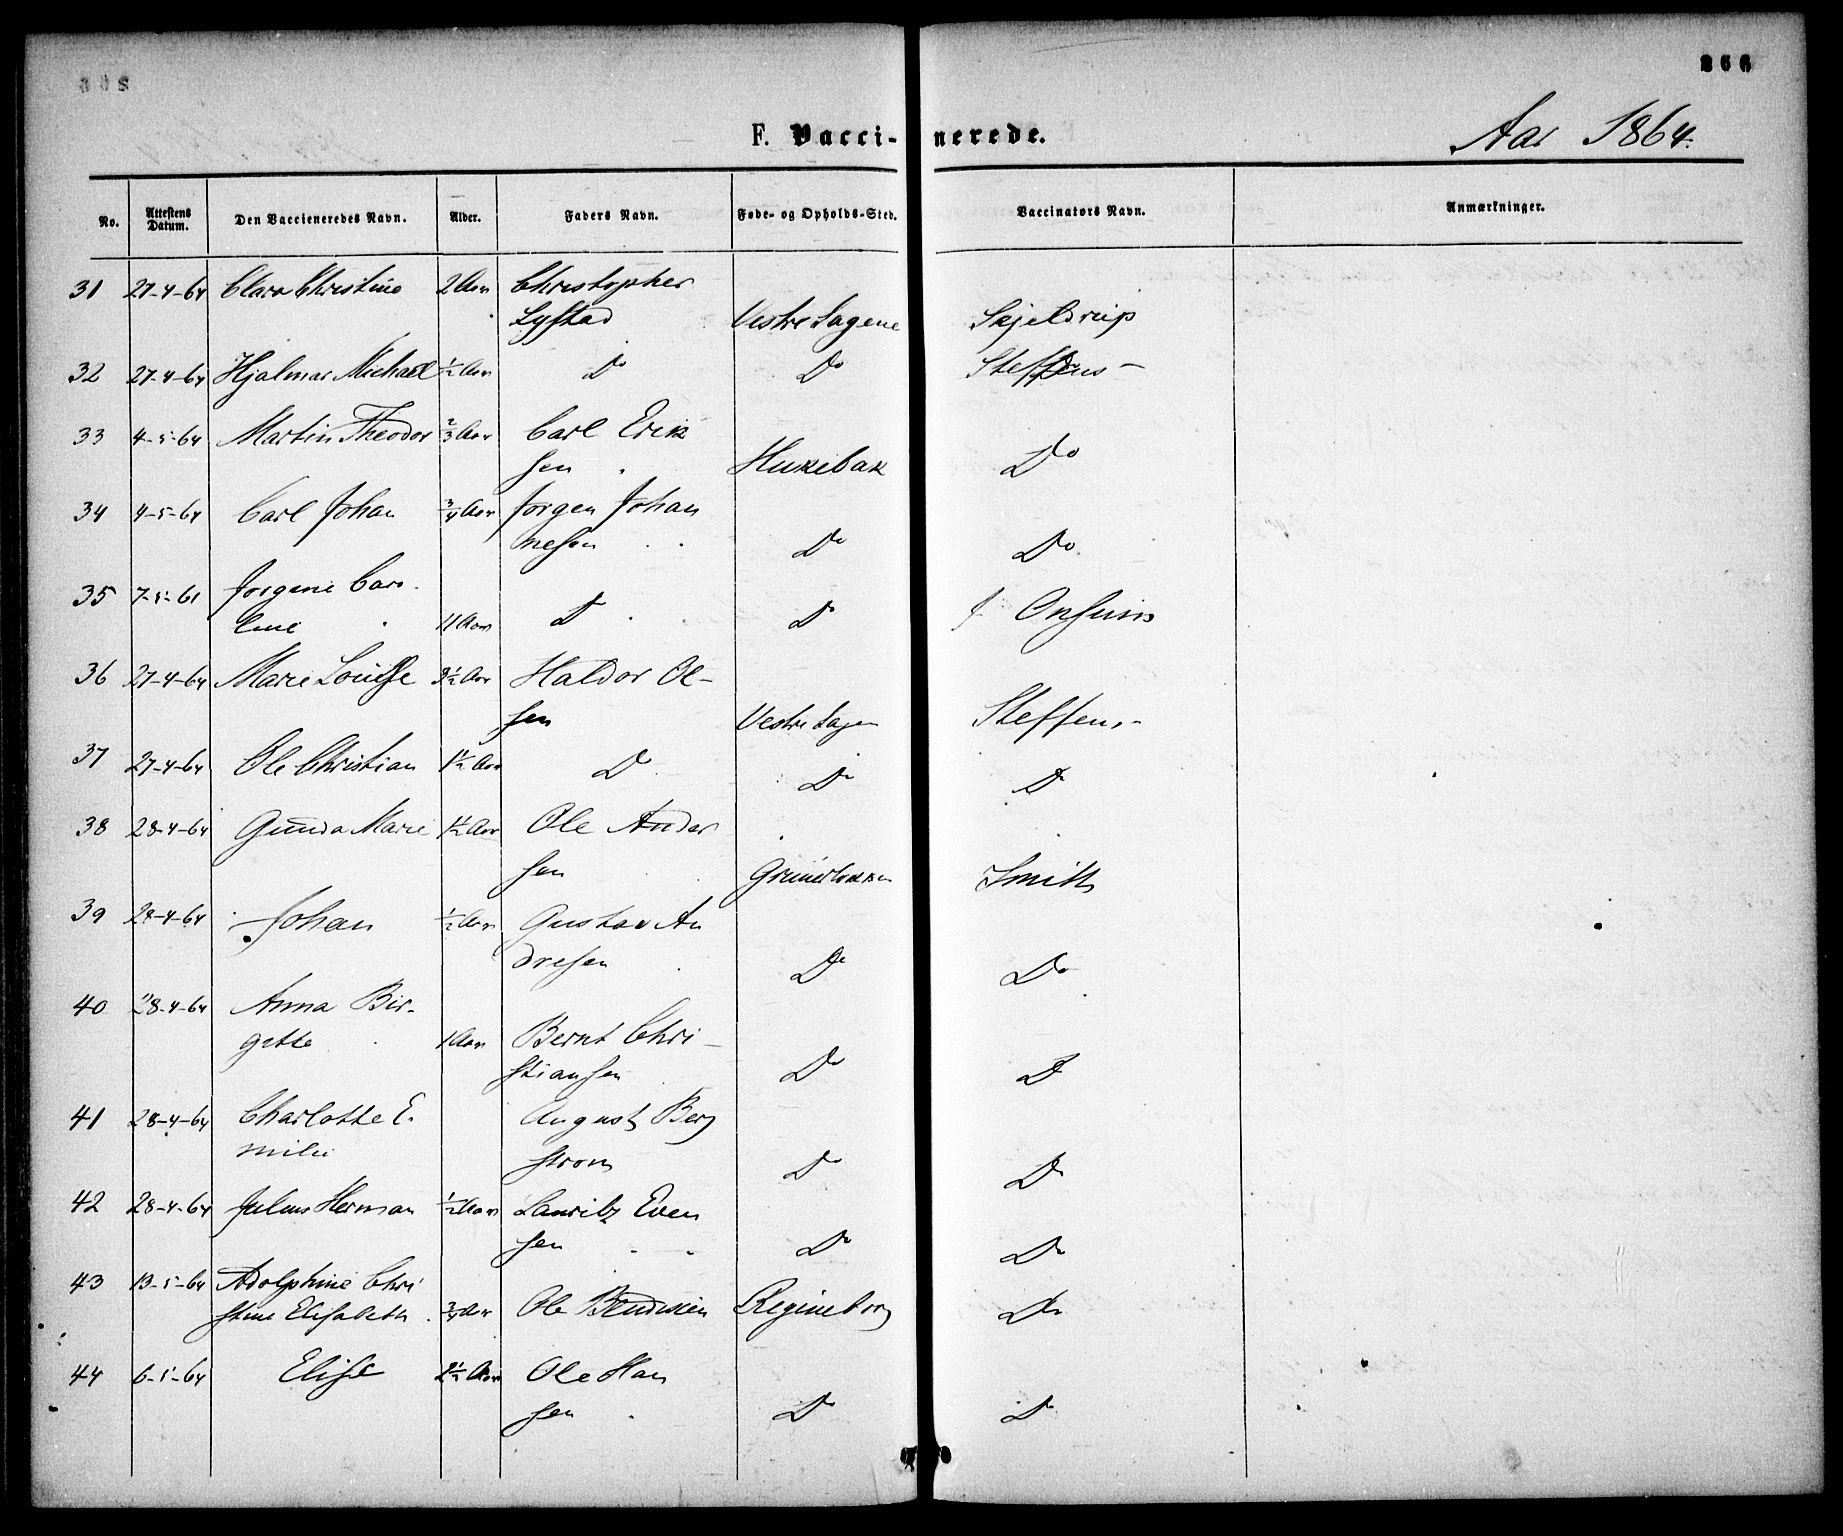 266
F. Vacci- nerede. Aar 1864.
No. Attestens Datum. Den Vaccineredes Navn. Alder. Faders Navn. Føde- og Opholds-Sted. Vaccinators Navn. Anmærkninger.
31 27-4-64 Clara Christine 2 Aar Christopher
Lystad Vestre Sagene Skjeldrup
32 27-4-64 Hjalmar Michael ½ Aar Do Do Steffens-
33 4-5-64 Martin Theodor ⅔ Aar Carl Erik
sen Hukebak Do
34 4-5-64 Carl Johan ¾ Aar Jørgen Johan
nesen Do Do
35 7-5-61 Jorgine Caro-
line 11 Aar D D
36 27-4-64 Marie Louisse 3½ Aar Haldor Ol-
sen Vestre Sagen Steffens-
37 27-4-64 Ole Christian 1½ Aar Do D D
38 28-4-64 Gunda Marie 1½ Aar Ole Ander
sen Grünerløkken Smith
39 28-4-64 Johan ½ Aar Gustav An
dresen Do Do
40 28-4-64 Anna Bir-
gitte 1 Aar Bernt Chri-
stiansen Do D
41 28-4-64 Charlotte E-
milie August Berg
strøm Do D
42 28-4-64 Julius Herman ½ Aar Lauritz Even
sen Do Do
43 13-5-64 Adolphine Chri
stine Elisabeth ¾ Aar Ole Regineborg Do
44 6-5-64 Elise 2½ Aar Ole Han
sen Do Do